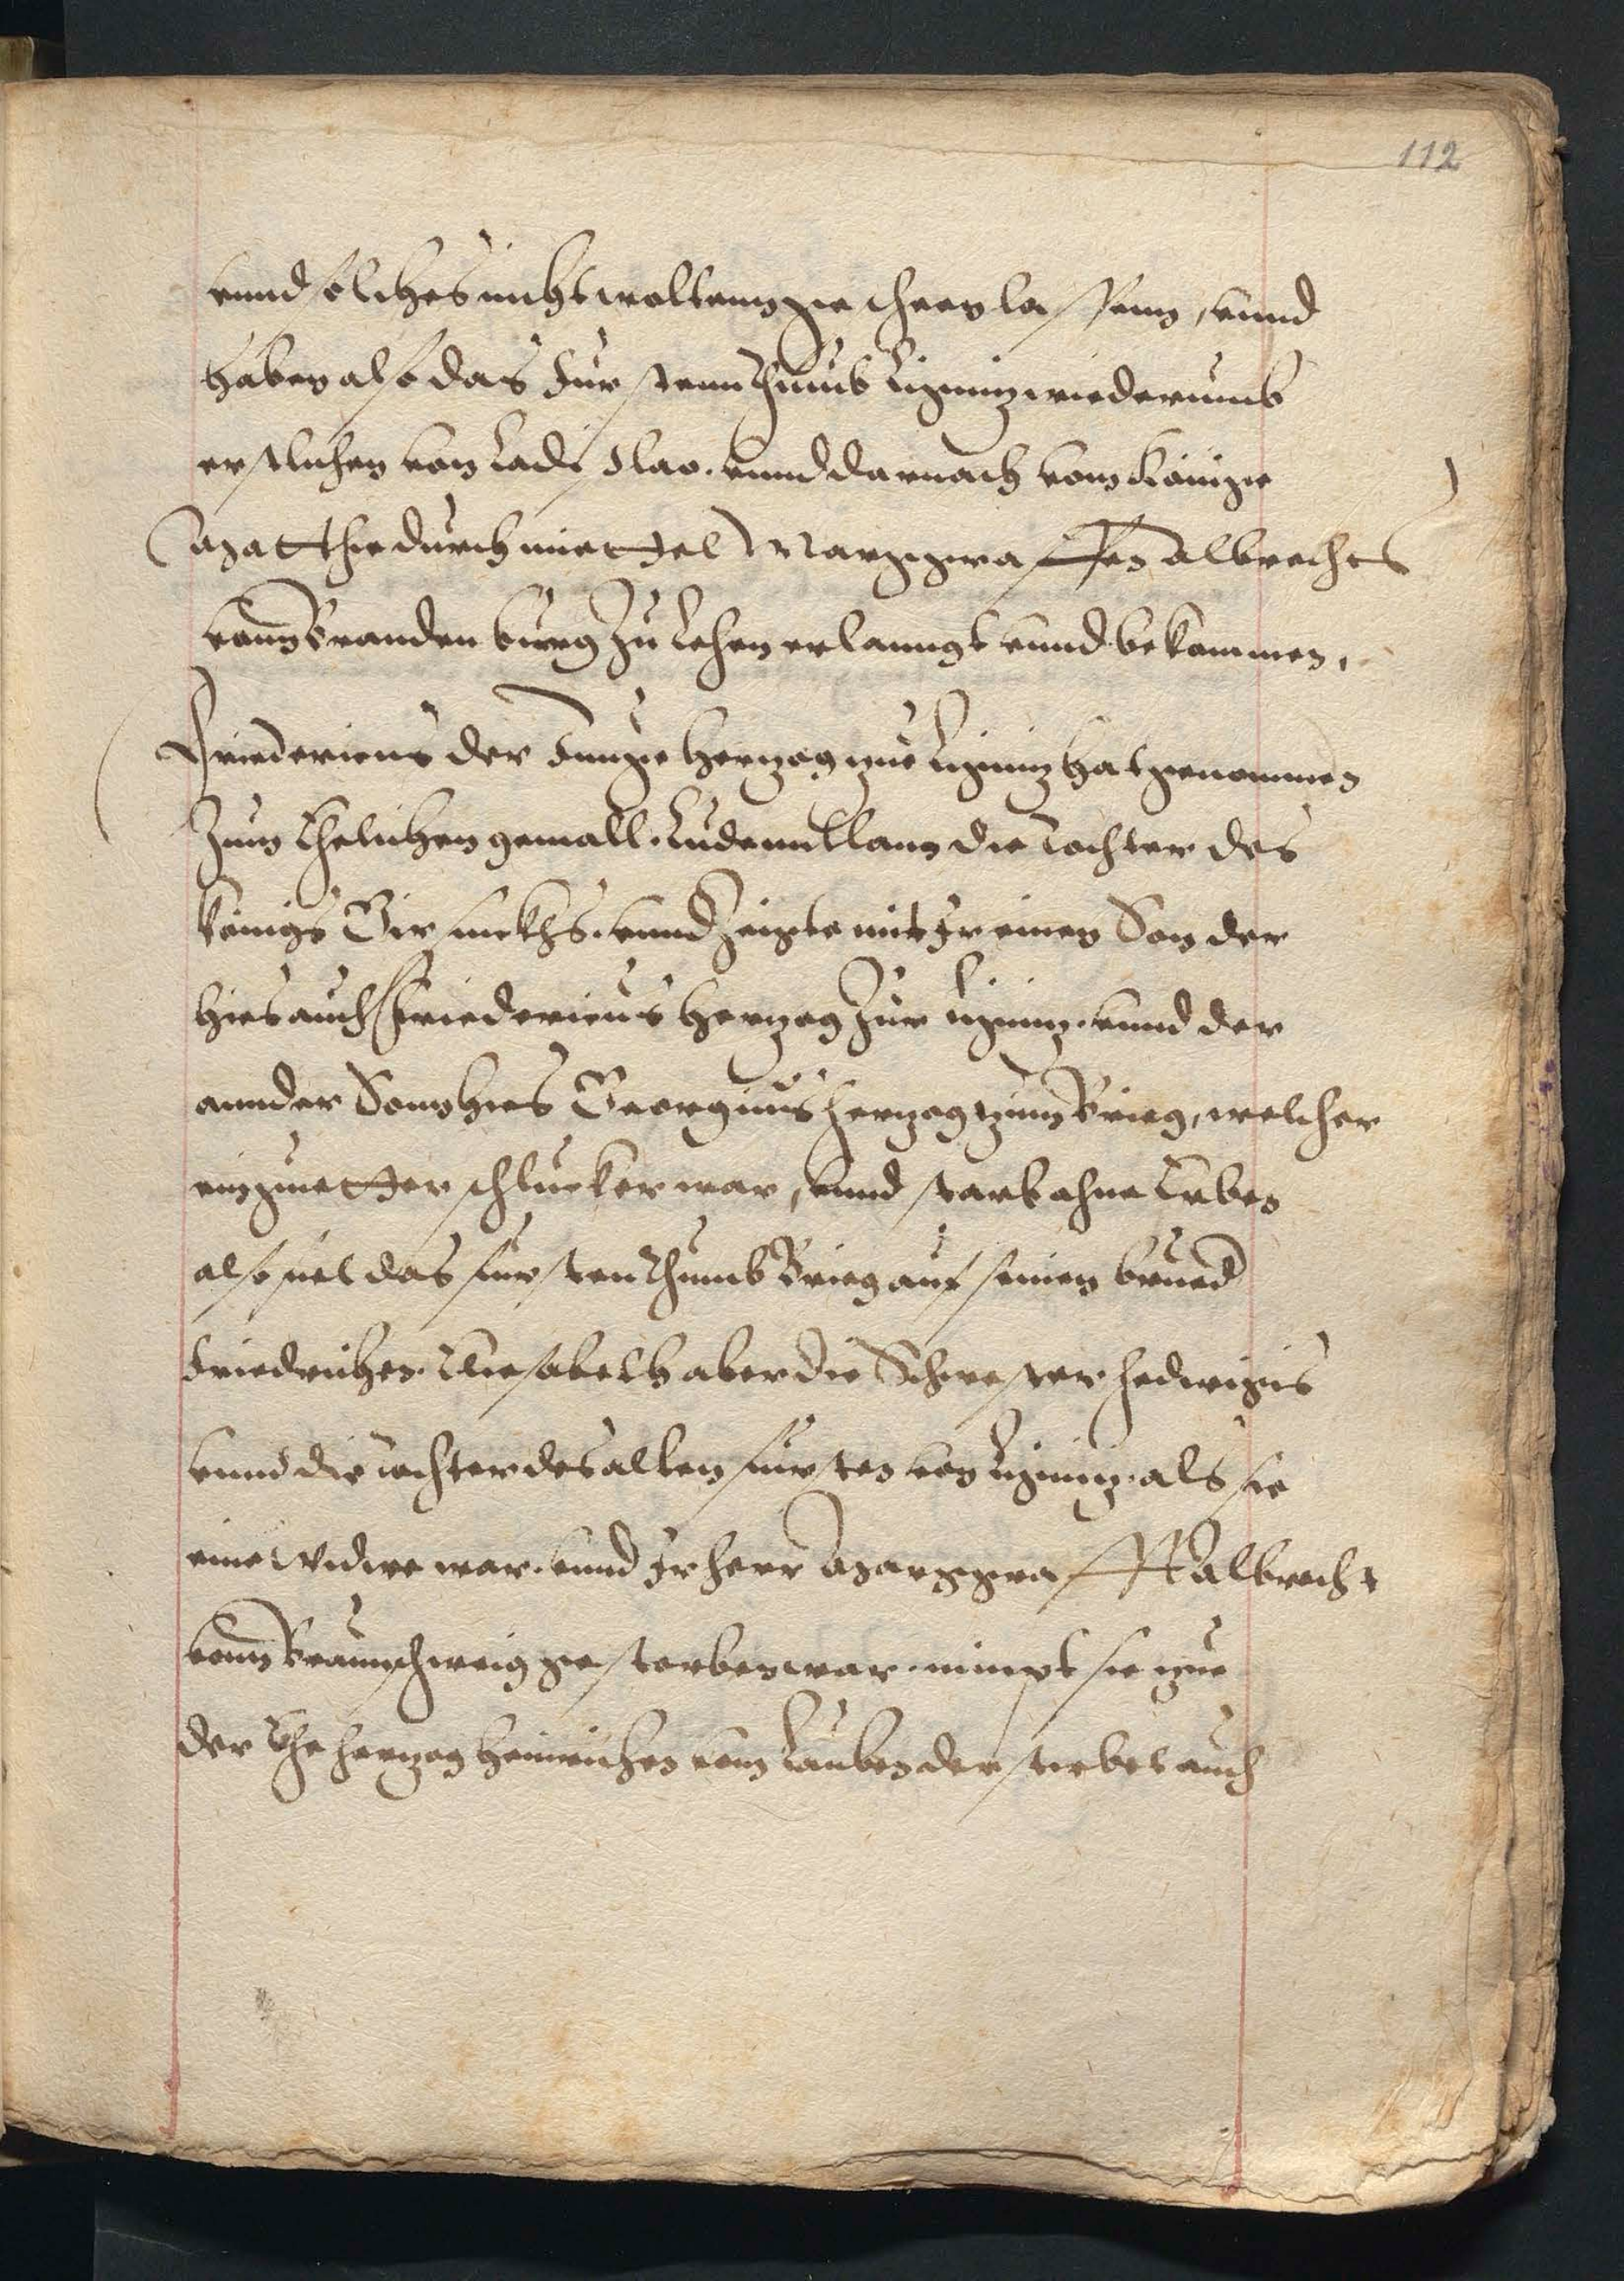 112
vnnd solches nicht woltenn geschees lassenn, vnnd
haben also das Furstennthumb Ligniz wiederumb
erstlichen von Ladislao. vnnd darnach vom Könige
Matthie durch miettel Marggraffen Albrechts
vonn Brandenburg zu Lehen erlanngt vnnd bekommen,
Friedericus der Junge Herzog zue Ligniz hat genommen
zum Ehelichen gemall. Ludemillann die Tochter des
Königs Girsickhs. vnnd Zeigte mit Jr einen Son der
hies auch Friedericus Herzog zur Ligniz. vnnd der
annder Sonn hies Georgius Herzog zum Brieg, welcher
ein guetter schlucker war, vnnd starb ohne Erben
also fiel das furstenthumb Brieg auf seinen brued
Friedrichen. Eliesabeth aber die Schwester Hedwigis
vnnd die tochter des alten fursten von Ligniz. als sie
eine Widwe war. vnnd Jr herr Marggraff Albrecht
vonn Braunschweig gestorben war. nimpt sie zue
der Ehe herzog Heinrichen vom Lauben der stirbet auch